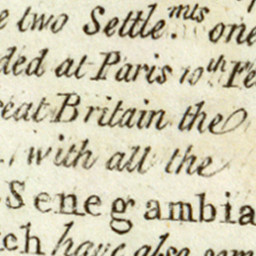 two Settle.mts one
ded at Paris 10th Fe
reat Britain the
with all the
Senegambia
ch have also